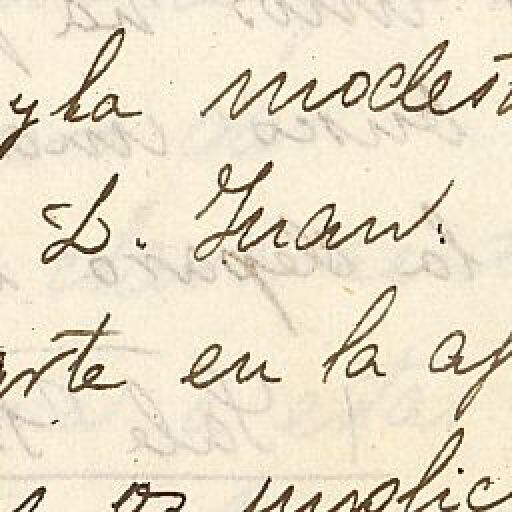 y la modest
D. Juan.
arte en la ap